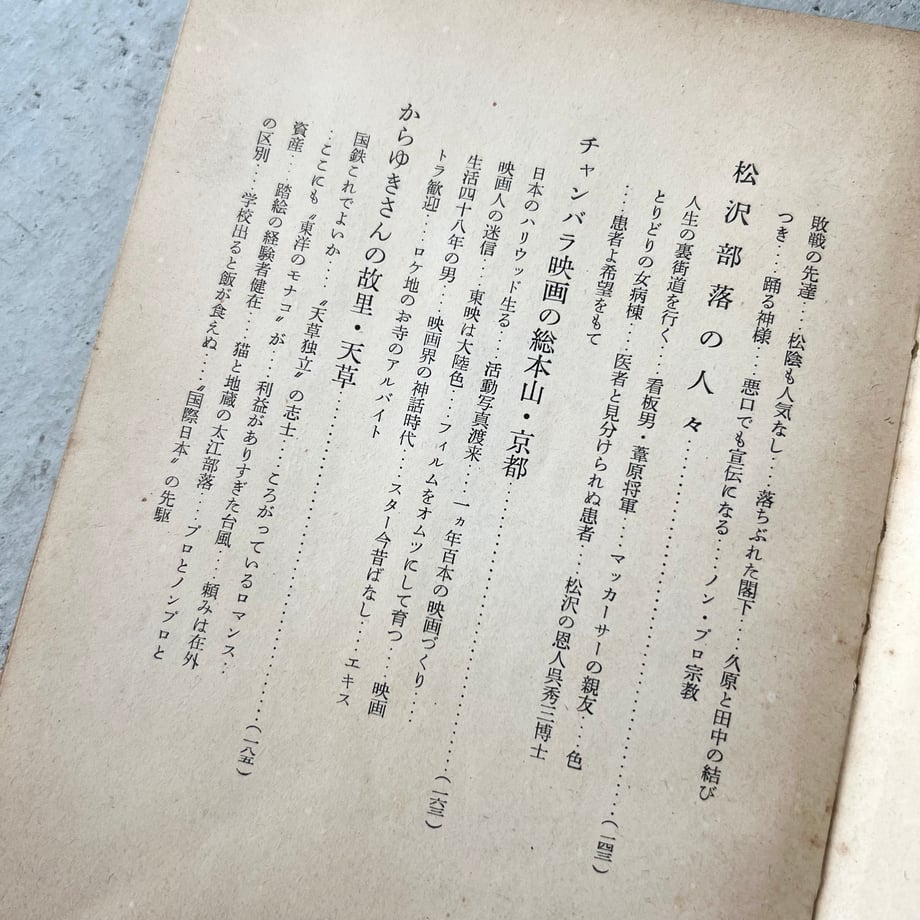 敗戦の先達…松陰も人気なし…落ちぶれた閣下…久原と田中の結び
つき…踊る神様…悪口でも宣伝になる…ノン・プロ宗教
松沢部落の人々……(一四三)
人生の裏街道を行く…看板男・葦原将軍…マッカーサーの親友…色
とりどりの女病棟…医者と見分けられぬ患者…松沢の恩人呉秀三博士
…患者よ希望をもて
チャンバラ映画の総本山・京都……(一六三)
日本のハリウッド生る…活動写真渡来…一ヵ年百本の映画づくり…
映画人の迷信…東映は大陸色…フィルムをオムツにして育つ…映画
生活四十八年の男…映画界の神話時代…スター今昔ばなし…エキス
トラ歓迎…ロケ地のお寺のアルバイト
からゆきさんの故里・天草……(一八五)
国鉄これでよいか…〝天草独立〟の志士…ころがっているロマンス…
…ここにも〝東洋のモナコ〟が…利益がありすぎた台風…頼みは在外
資産…踏絵の経験者健在…猫と地蔵の太江部落…プロとノンプロと
の区別…学校出ると飯が食えぬ…〝国際日本〟の先駆